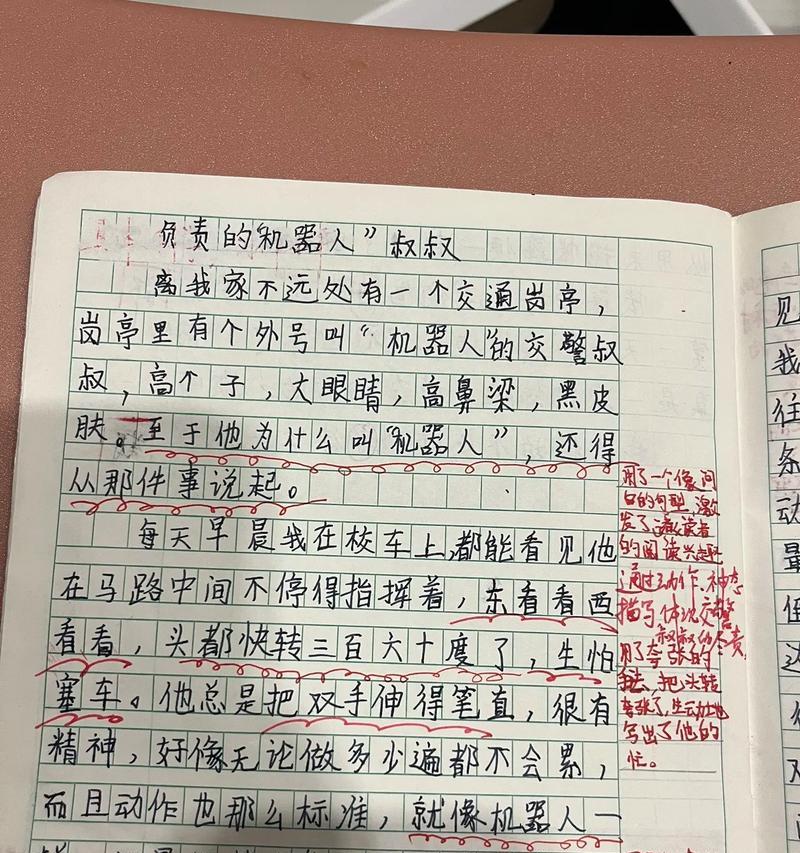 负责的“机器人”叔叔
离我家不远处有一个交通岗亭，
岗亭里有个外号叫“机器人”的交警叔
叔，高个子，大眼睛，高鼻梁，黑皮
肤。至于他为什么叫“机器人”，还得
从那件事说起。
每天早晨我在校车上，都能看见他
在马路中间不停得指挥着，东看看西
看看，头都快转三百六十度了，生怕
塞车。他总是把双手伸得笔直，很有
精神，好像无论做多少遍都不会累，
而且动作也那么标准，就像机器人一
用了一个像问
句的句型，激
发了读者
的阅读兴趣
通过动作、神态
描写体现交警
叔叔的负责
用了夸张的
把头转
夸张了，生动地
写出了他的
忙。
见
我
往
条
动
最
但
边